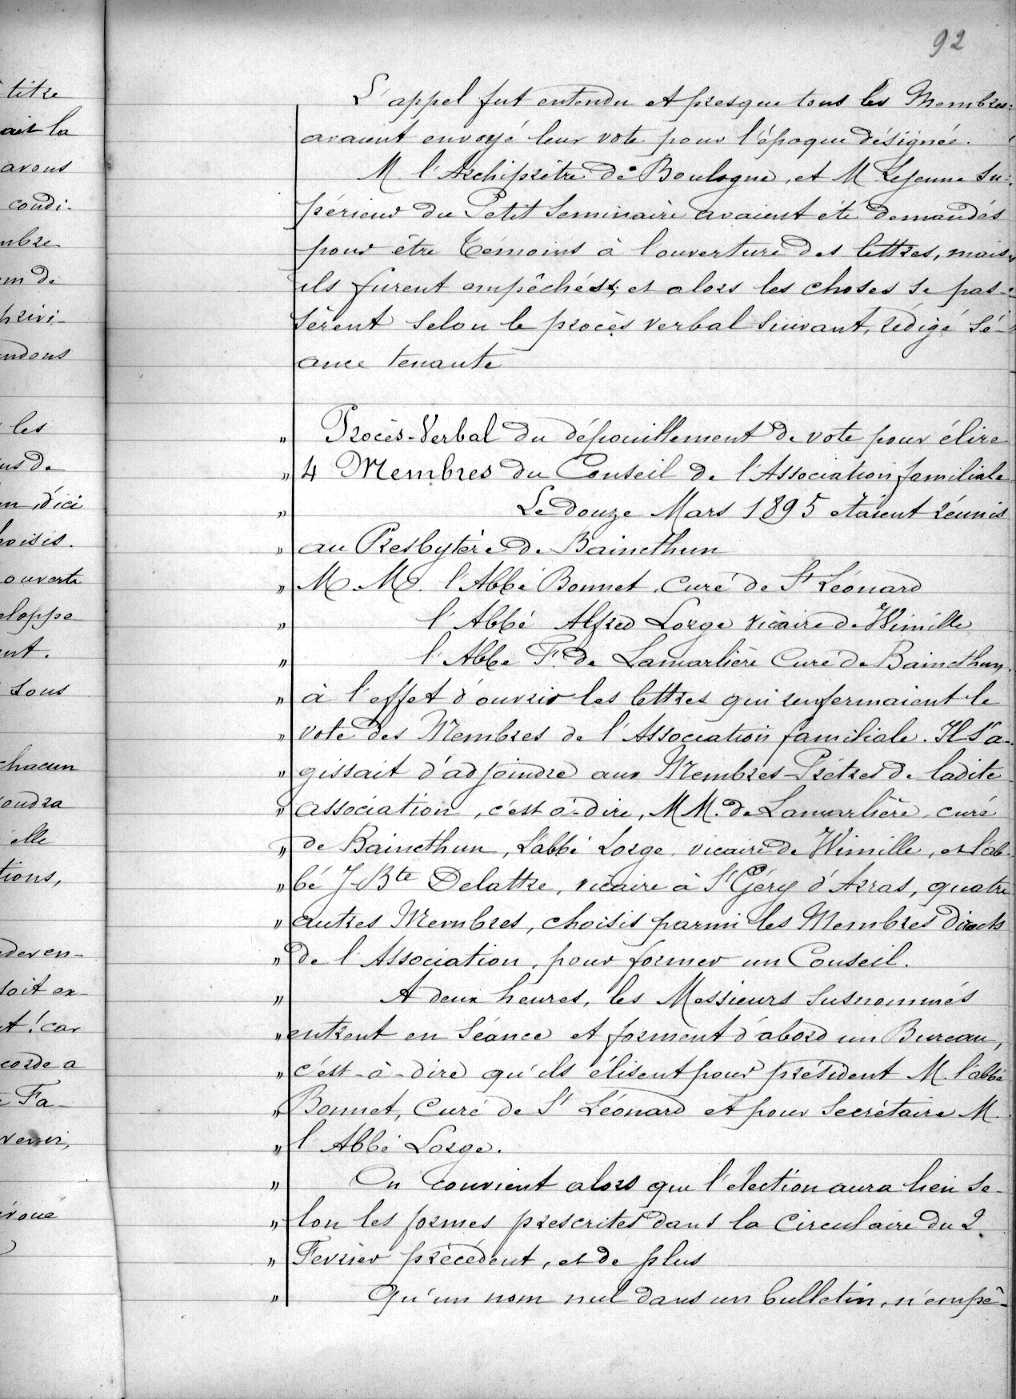 92
titre
ait la
avons
condi-
mbre
de
privi-
endons
les
us de
d'ici
hoisis.
ouverte
eloppe
ent.
sous
chacun
oudra
elle
tions,
deven-
soit ex-
t! car
corde a
Fa-
venir,
L'appel fut entendu et presque tous les Membres
avaient envoyé leur vote pour l'époque désignée.
M l'Archiprêtre de Boulogne, et M Lejeune Su-
périeur du Petit Seminaire avaient été demandés
pour être Témoins à l'ouverture des lettres, mais
ils furent empêchés; et alors les choses se pas-
sèrent selon le procès verbal suivant, rédigé sé-
ance tenante
" Procès-Verbal du dépouillement de vote pour élire
" 4 Membres du Conseil de l'Association familiale
" Le douze Mars 1895 étaient réunis
" au Presbytère de Baincthun
" M. M. l'Abbé Bonnet, Curé de St Léonard
" l'Abbé Alfred Lorge vicaire de Wimille
" l'Abbé F. de Lamarlière Curé de Baincthun.
" à l'effet d'ouvrir les lettres qui renfermaient le
" vote des Membres de l'Association familiale. Il s'a-
" gissait d'adjoindre aux Membres-Prêtres de ladite
" association, c'est-à-dire, MM. de Lamarlière, curé
" de Baincthun, l'abbé Lorge, vicaire de Wimille, et l'ab-
" bé J-Bte Delattre, vicaire à St Géry d'Arras, quatre
" autres Membres, choisis parmi les Membres directs
" de l'Association, pour former un Conseil.
" A deux heures, les Messieurs susnommés
" entrent en Séance et forment d'abord un Bureau,
" c'est-à-dire qu'ils élisent pour président M. l'abbé
" Bonnet, Curé de St Léonard et pour Secrétaire M.
" l'Abbé Lorge.
" On convient alors que l'élection aura lieu se-
" lon les formes prescrites dans la Circulaire du 2
" Fevrier précédent, et de plus
" Qu'un nom nul dans un bulletin, n'empê-